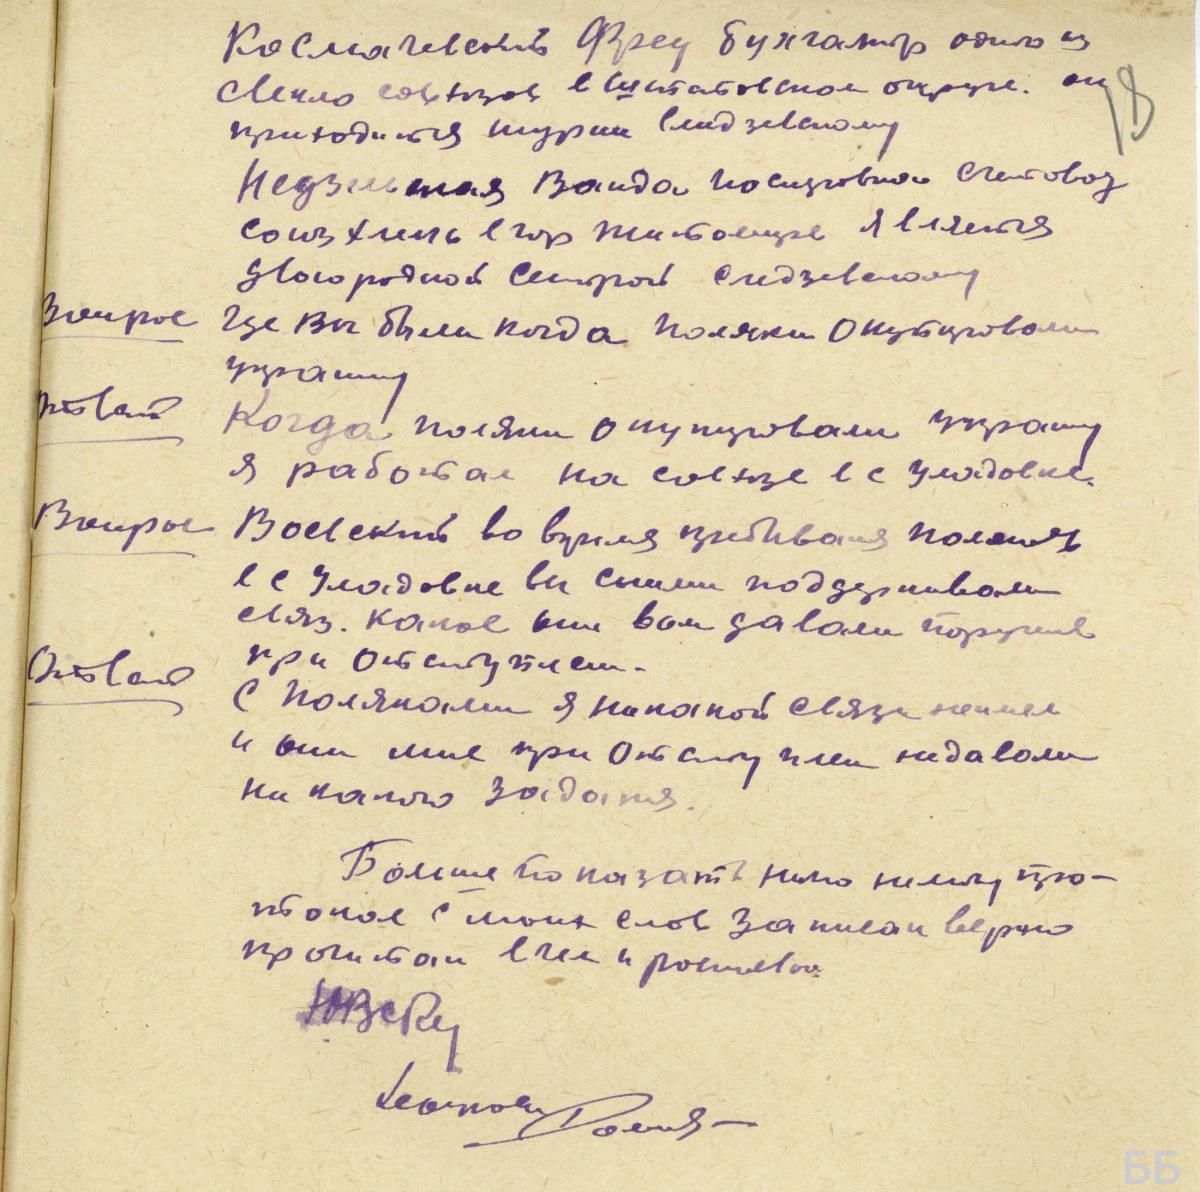 Космачевский Фрец бухгалтер одного из
свекло совхозов в округе. он
приходится шурин Следзевскому
18
Недзельская Ванда Иосиповна счетовод
союзхлеб в гор Житомире является
двоюродной сестрой Следзевскому
Вопрос Где Вы были когда поляки окупировали
украину
Ответ Когда поляки окупировали украину
я работал на совхозе в с Уладовке.
Вопрос Воевский во время прибиваня поляков
в с Уладовке вы с ними поддерживали
связ. какое они вам давали поручен
при отступлени.
Ответ С Поляками я никакой связи неимел
и они мне при отступлени недавали
ни какого задания.
Больше показать ничего немогу про-
токол с моих слов записан верно
прочитан в чем и росписвоюсь
ББ